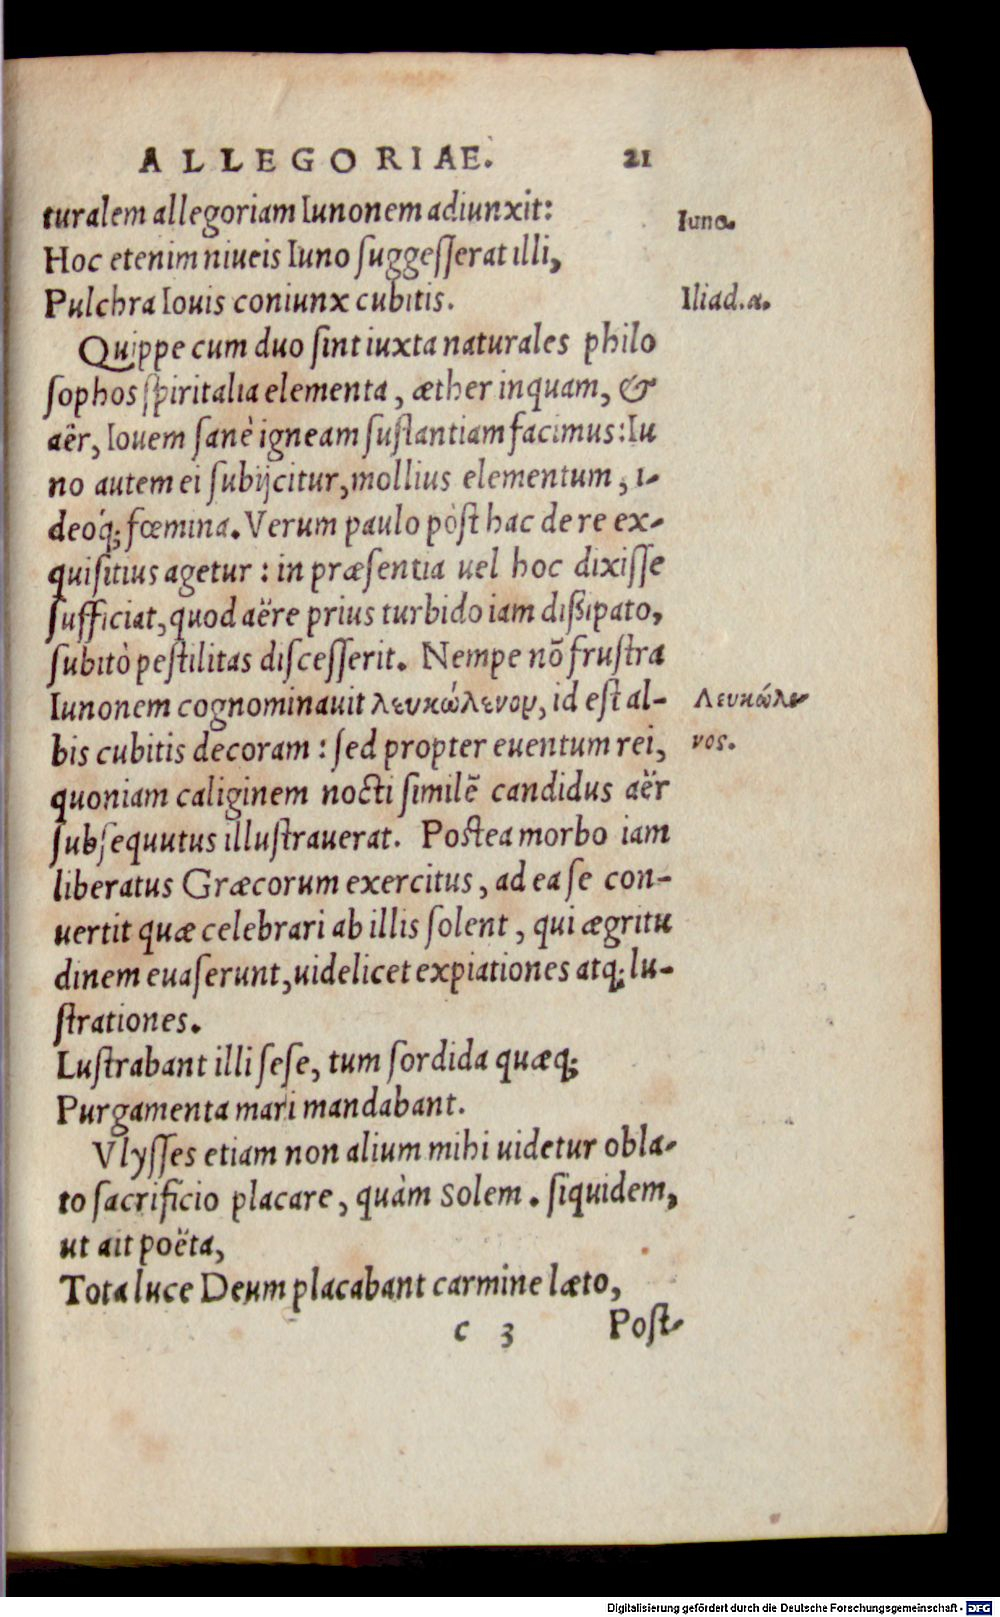 ALLEGORIAE. 21
turalem allegoriam Iunonem adiunxit:
Iuno.
Hoc etenim niueis Iuno ſuggeſſerat illi,
Pulchra Iouis coniunx cubitis.
Iliad.α.
Quippe cum duo ſint iuxta naturales philo
ſophos ſpiritalia elementa, æther inquam, &
aër, Iouem ſanè igneam ſuſtantiam facimus: Iu
no autem ei ſubijcitur, mollius elementum, i-
deoq́; fœmina. Verum paulo pòst hac de re ex-
quiſitius agetur: in præſentia uel hoc dixiſſe
ſufficiat, quod aëre prius turbido iam dißipato,
ſubitò peſtilitas diſceſſerit. Nempe nõ fruſtra
Iunonem cognominauit λευκώλενον, id eſt al-
Λευκώλε-
bis cubitis decoram: ſed propter euentum rei,
νος.
quoniam caliginem nocti ſimilẽ candidus aër
ſubſequutus illuſtrauerat. Postea morbo iam
liberatus Græcorum exercitus, ad ea ſe con-
uertit quæ celebrari ab illis ſolent, qui ægritu
dinem euaſerunt, uidelicet expiationes atq; lu-
ſtrationes.
Luſtrabant illi ſeſe, tum ſordida quæq;
Purgamenta mari mandabant.
Vlyſſes etiam non alium mihi uidetur obla-
to ſacrificio placare, quàm Solem. ſiquidem,
ut ait poëta,
Tota luce Deum placabant carmine læto,
c 3 Poſt-
Digitalisierung gefördert durch die Deutsche Forschungsgemeinschaft - DFG